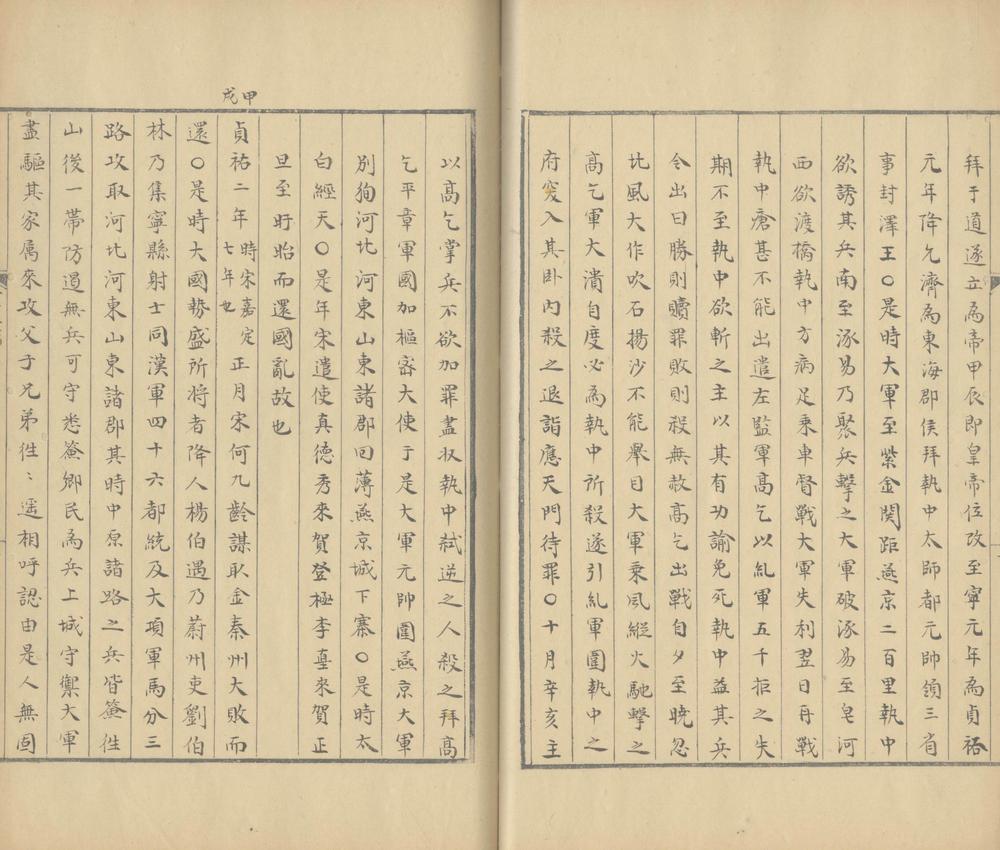 拜于道遂立爲帝甲辰即皇帝位改至寧元年爲貞祐
元年降允濟爲東海郡侯拜執中太師都元帥領三省
事封澤王〇是時大軍至紫金関距燕京二百里執中
欲誘其兵南至涿易乃聚兵擊之大軍破涿易至皂河
西欲渡橋執中方病足乗車督戰大軍失利翌日再戰
執中瘡甚不能出遣左監軍髙乞以糺軍五千拒之失
期不至執中欲斬之主以其有功諭免死執中益其兵
令出曰勝則贖罪敗則殺無赦髙乞出戰自夕至曉忽
北風大作吹石揚沙不能舉目大軍乗風縱火馳擊之
髙乞軍大潰自度必爲執中所殺遂引糺軍圍執中之
府突入其卧内殺之退詣應天門待罪〇十月辛亥主
以髙乞掌兵不欲加罪盡収執中弑逆之人殺之拜髙
乞平章軍國加樞宻大使于是大軍元帥圍燕京大軍
別狥河北河東山東諸郡回薄燕京城下寨〇是時太
白經天〇是年宋遣使真德秀來賀登極李𡌴來賀正
旦至盱眙而還國亂故也
甲戌
貞祐二年時宋嘉定七年也正月宋何九齡謀取金秦州大敗而
還〇是時大國勢盛所将者降人楊伯遇乃蔚州吏劉伯
林乃集寧縣射士同漢軍四十六都統及大項軍馬分三
路攻取河北河東山東諸郡其時中原諸路之兵皆簽徃
山後一帶防遏無兵可守悉簽鄉民爲兵上城守禦大軍
盡驅其家属來攻父子兄弟徃〻遥相呼認由是人無固